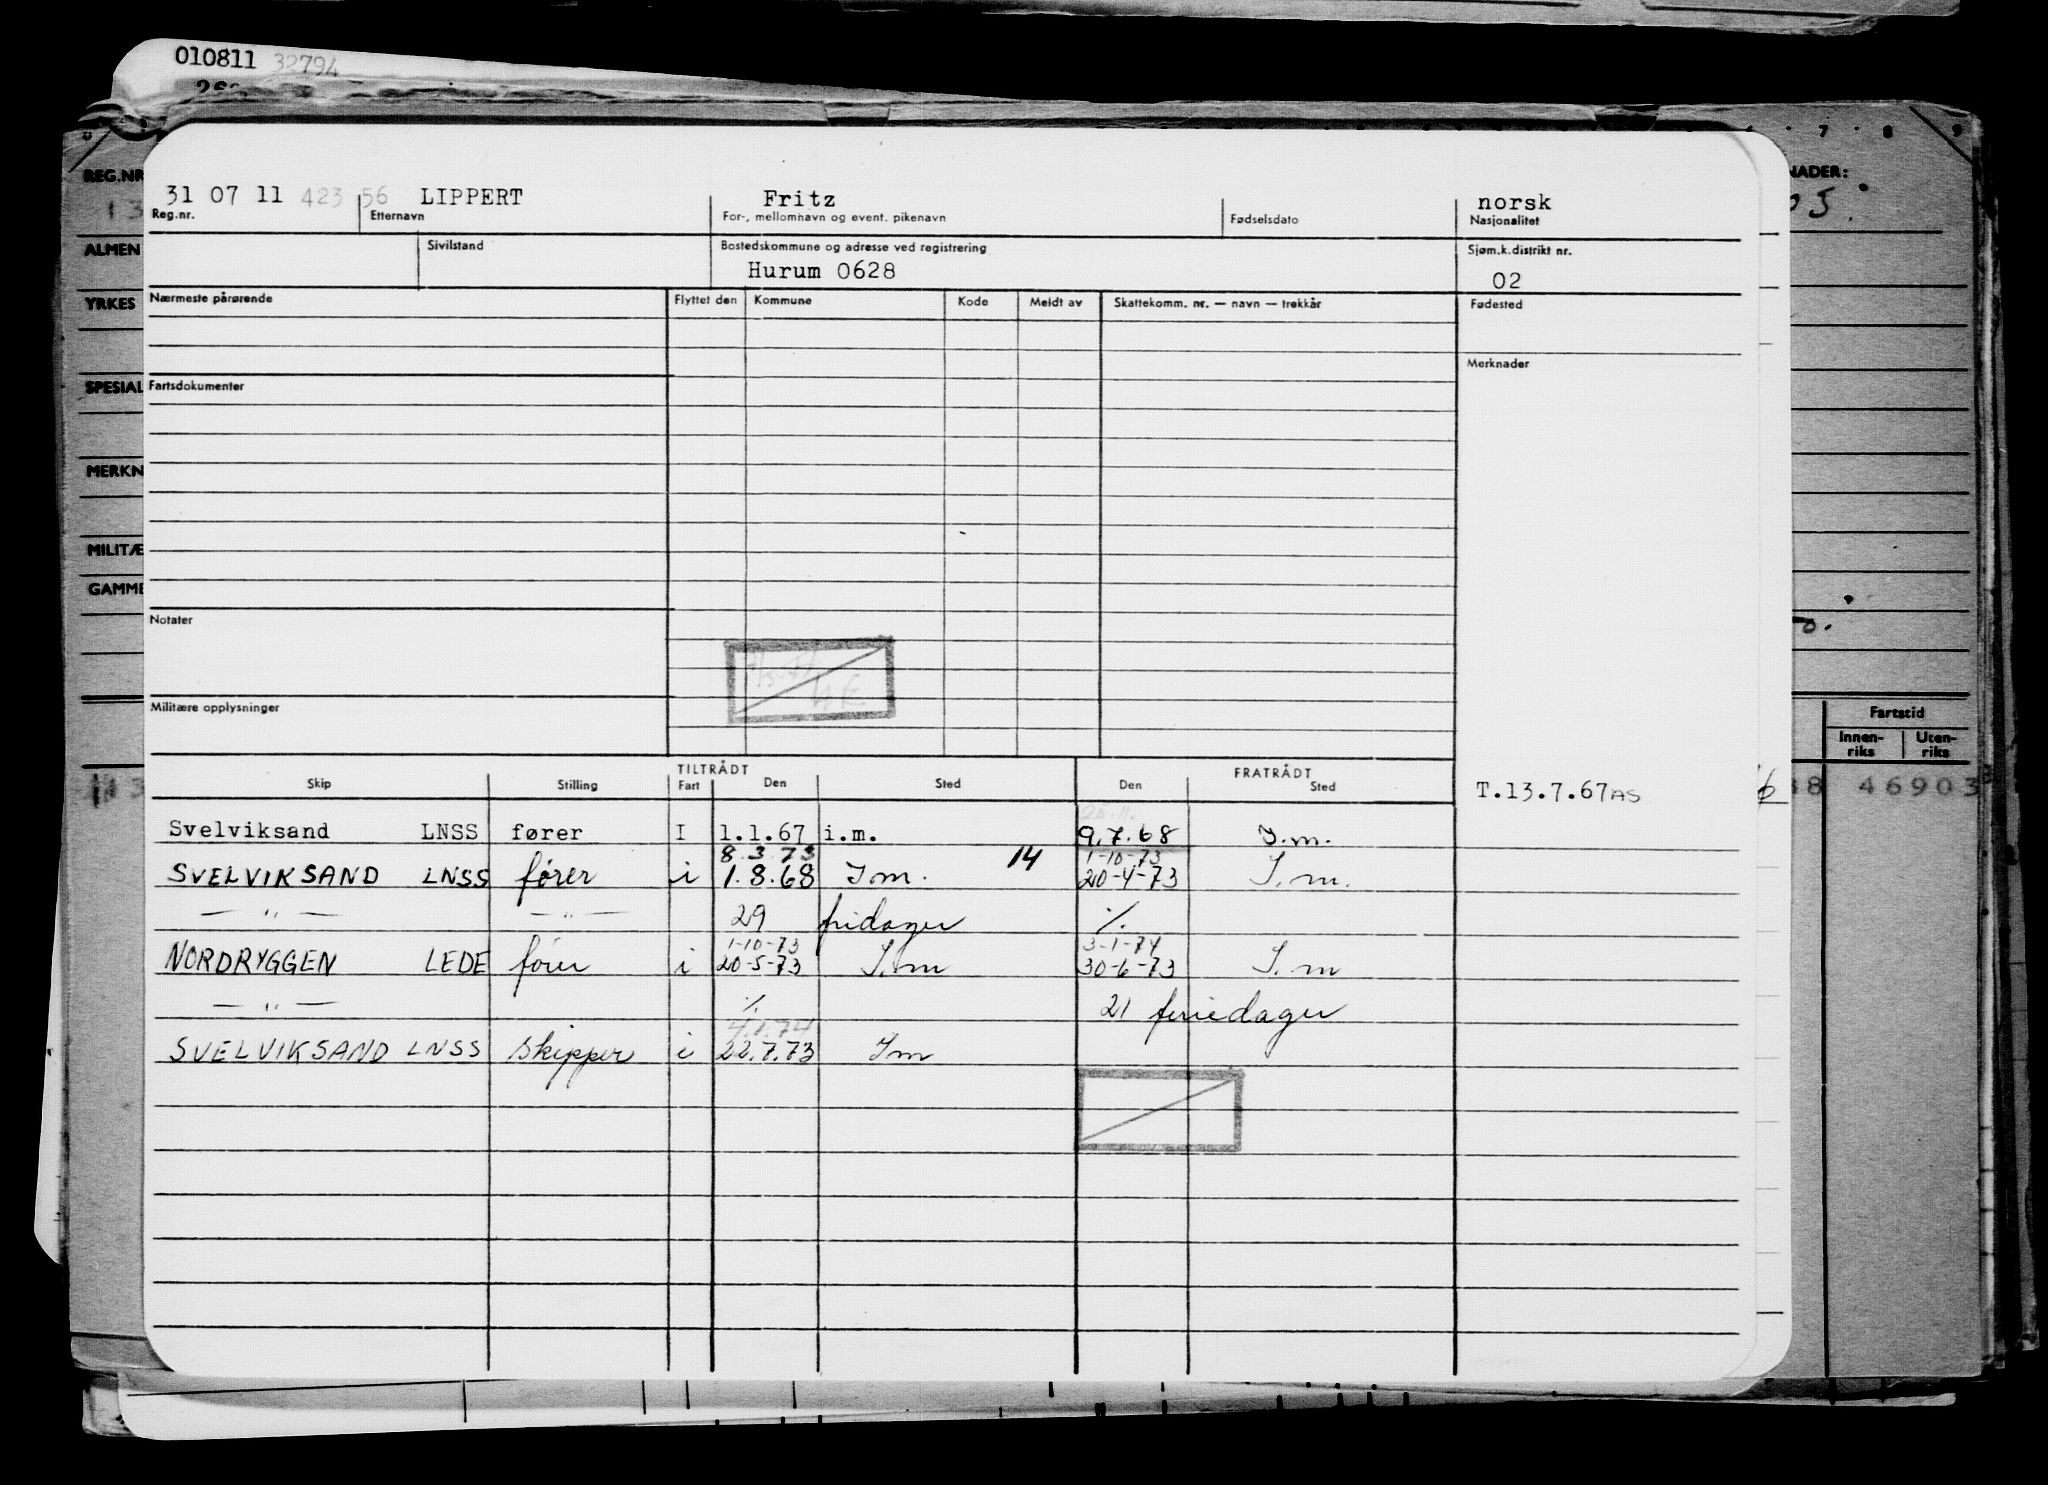 010811 32794
7 8 9
REG.NR
NADER:
13
05.
31 07 11 423 56 LIPPERT Fritz norsk
Reg.nr. Etternavn For-, mellomnavn og event. pikenavn Fødselsdato Nasjonalitet
ALMEN Sivilstand Bostedskommune og adresse ved registrering Sjøm.k.distrikt nr.
Hurum 0628 02
YRKES Nærmeste pårørende Flyttet den Kommune Kode Meldt av Skattekomm. nr. — navn — trekkår Fødested
Merknader
SPESIAL Fartsdokumenter
MERKN
MILITÆ
GAMME
Notater
Militære opplysninger
Fartstid
Innen-riks Uten-riks
TILTRÅDT FRATRÅDT
Skip Stilling Fart Den Sted Den Sted
T.13.7.67AS
38 46903
Svelviksand LNSS fører I 1.1.67 i.m. 9.7.68 I.m.
8.3.73 1-10-73
SVELVIKSAND LNSS fører i 1.8.68 I m. 14 20-4-73 I.m.
— " — — " — 29 fridager ·/.
1-10-73 3-1-74
NORDRYGGEN LEDE fører i 20-5-73 I.m 30-6-73 I.m
— " — ·/. 21 feriedager
4.1.74
SVELVIKSAND LNSS skipper i 22.7.73 Im